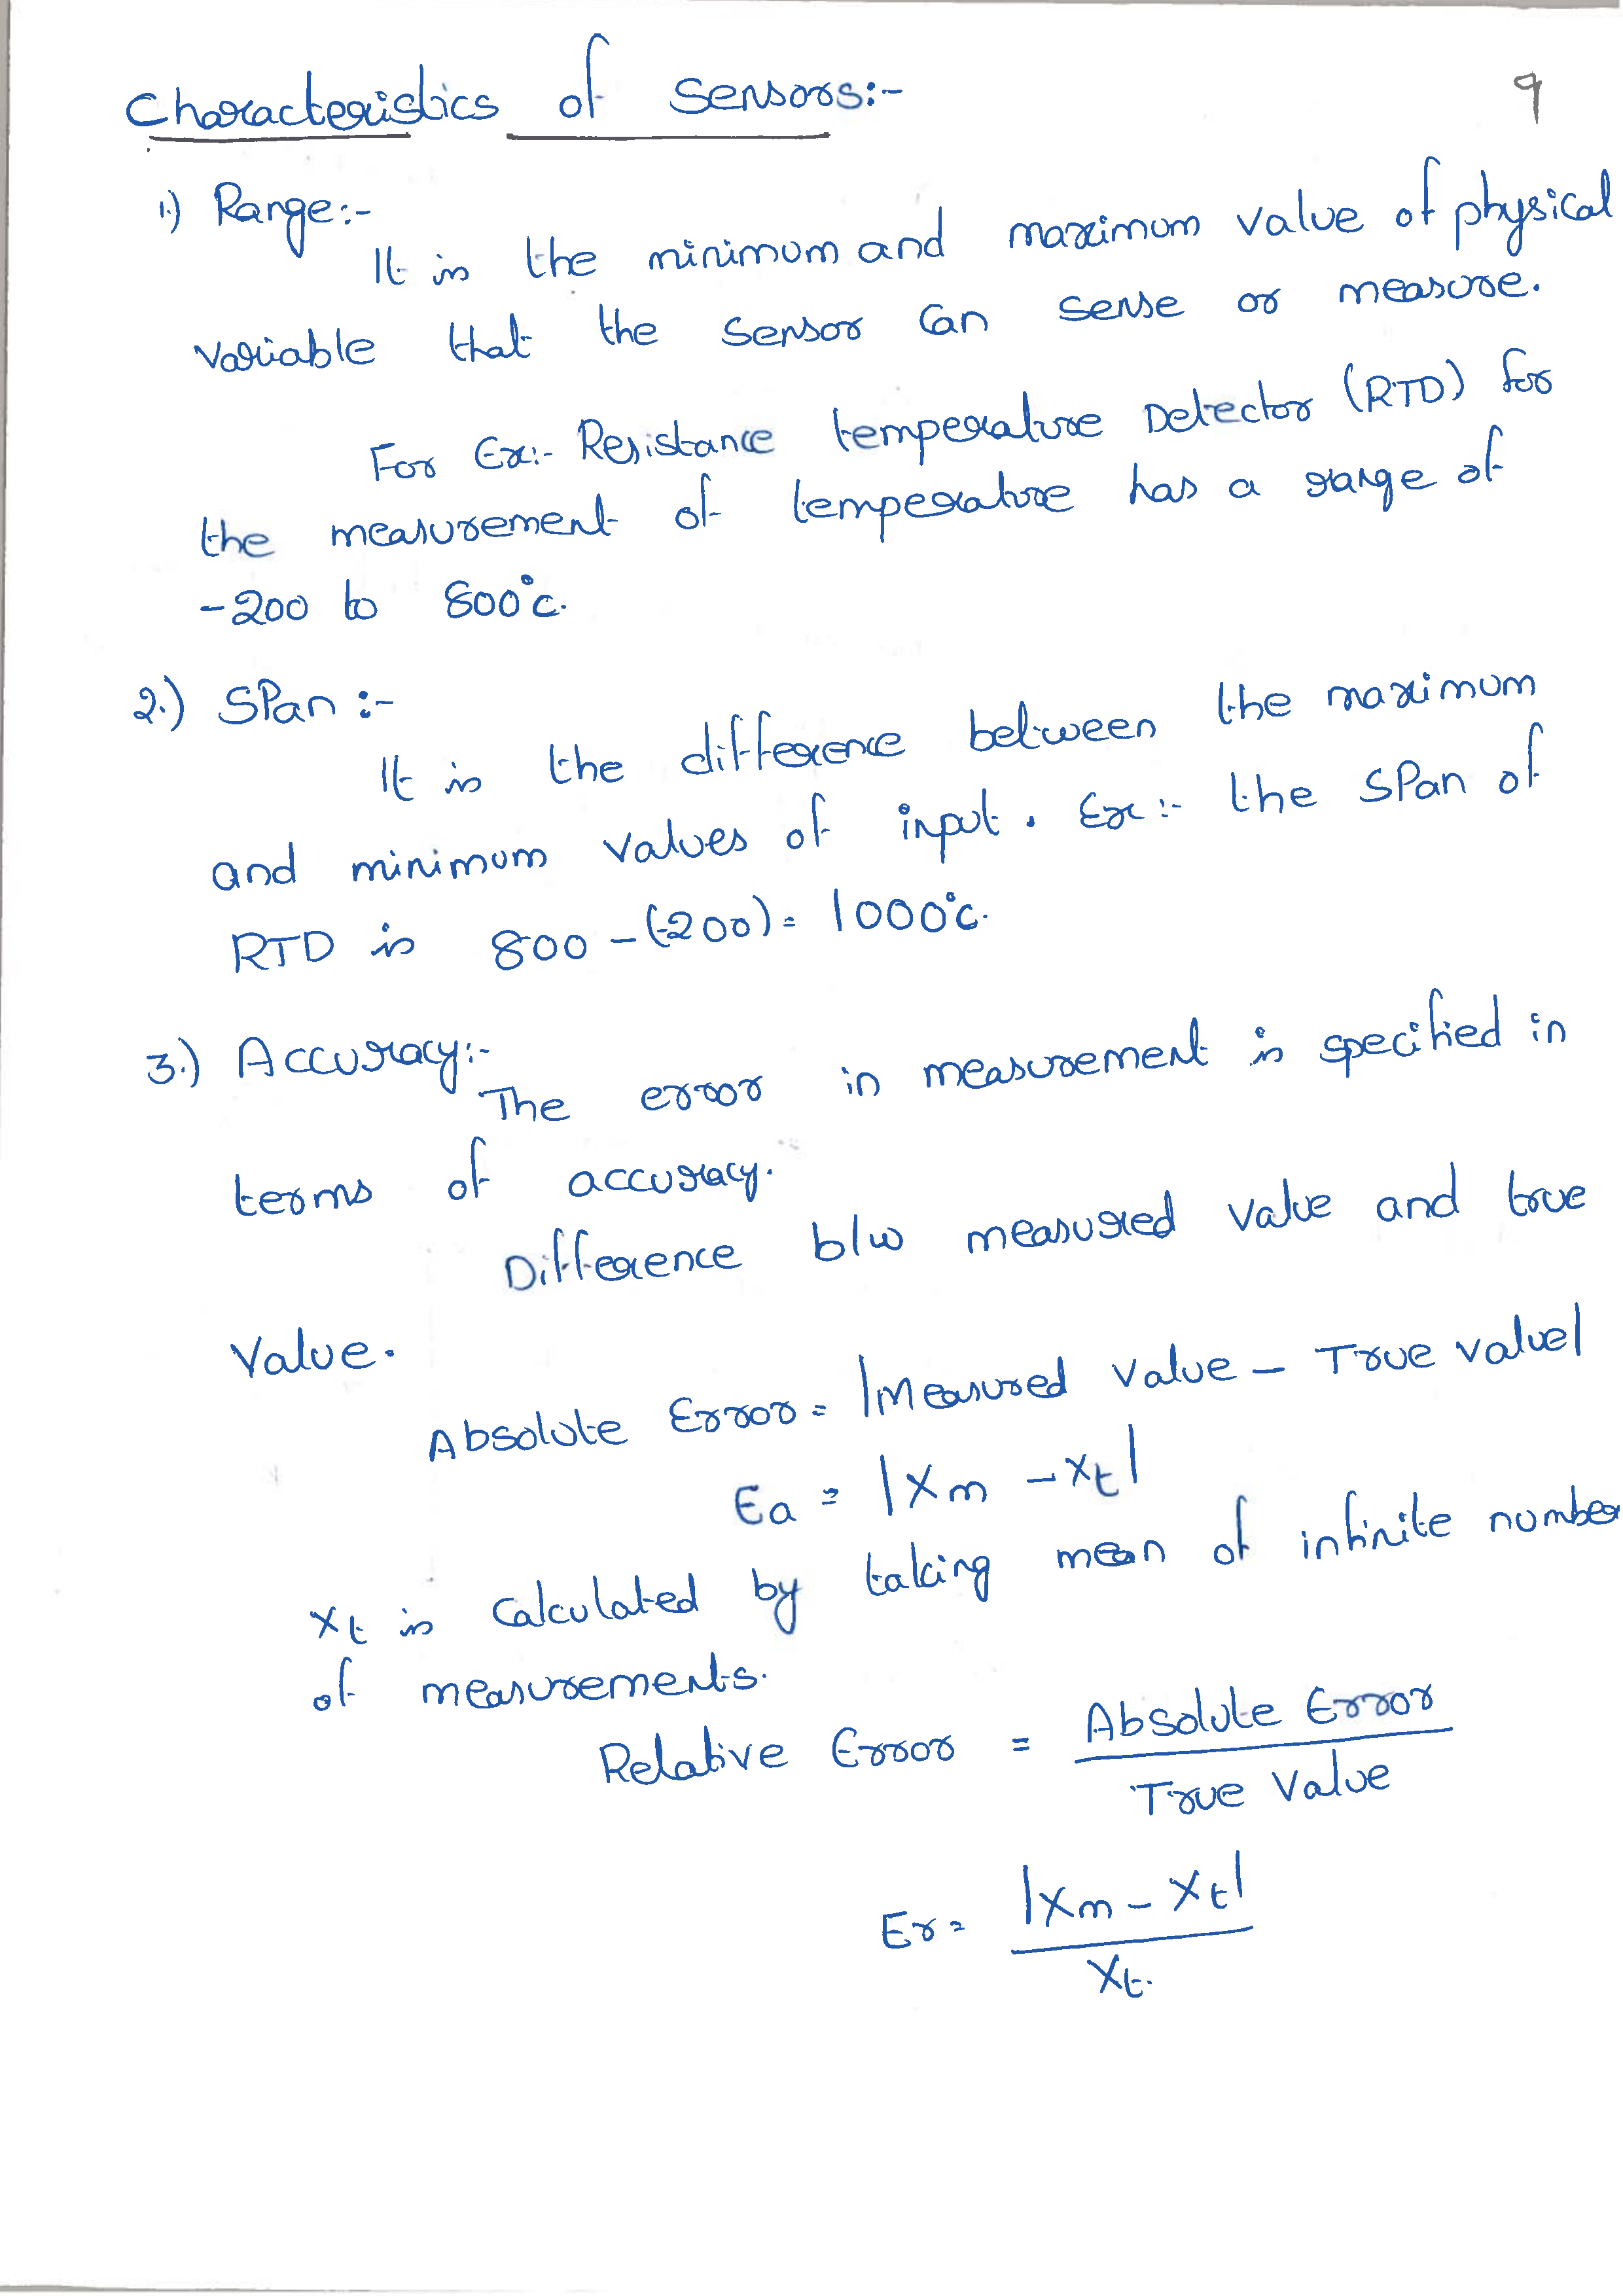 Characteristics of Sensors:-
9
1.) Range:-
It is the minimum and maximum value of physical
variable that the sensor can sense or measure.
For Ex:- Resistance temperature Detector (RTD) for
the measurement of temperature has a range of
-200 to 800°c.
2.) SPan :-
It is the difference between the maximum
and minimum values of input. Ex:- the SPan of
RTD is 800 - (-200) = 1000°c.
3.) Accuracy:-
The error in measurement is specified in
terms of accuracy.
Difference b/w measured value and true
Value.
Absolute Error = |Measured Value - True value|
Ea = |Xm - Xt|
Xt is calculated by taking mean of infinite number
of measurements.
Relative Error = Absolute Error
True Value
Er = |Xm - Xt|
Xt.